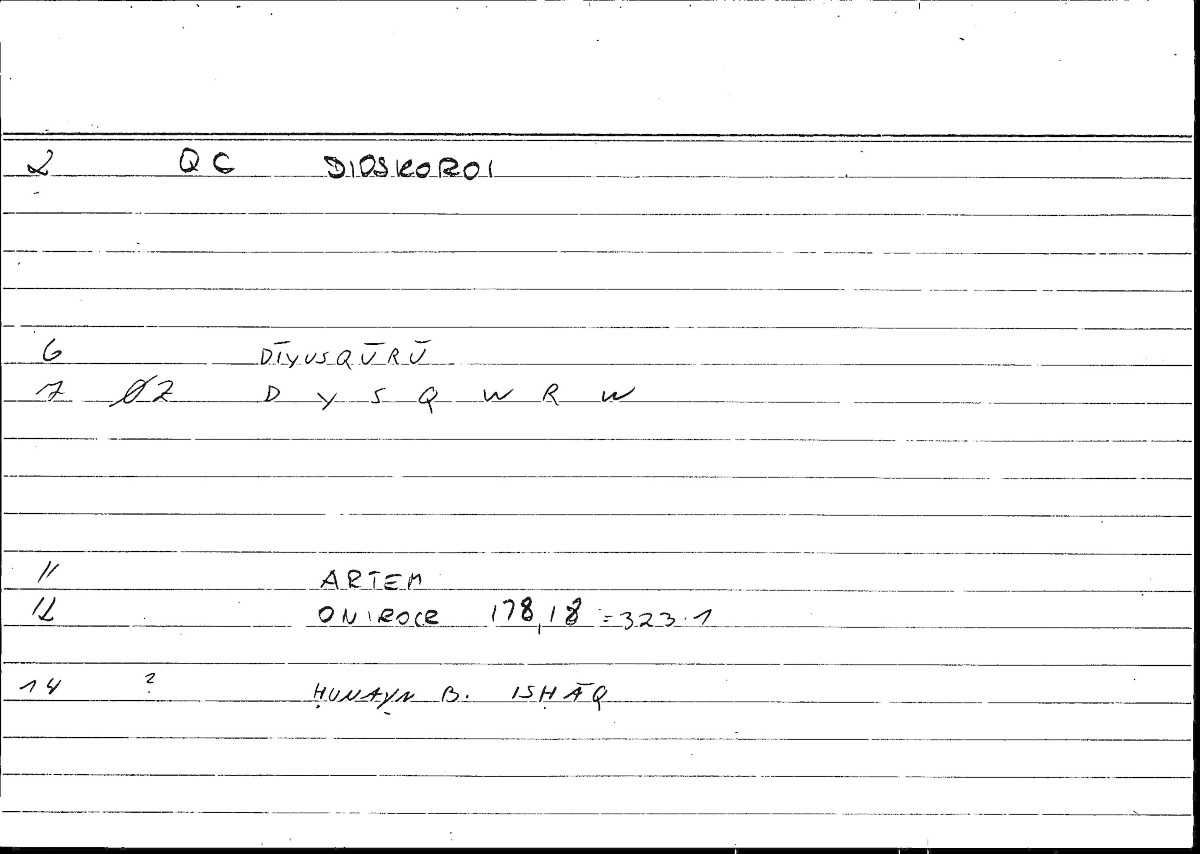 2 QC DIOSKOROI
6 DĪYUSQŪRŪ
7 Ø2 D Y S Q W R W
11 ARTEM
12 ONIROCR 178,18 = 323.1
14 ? ḤUNAYN B. ISḤĀQ